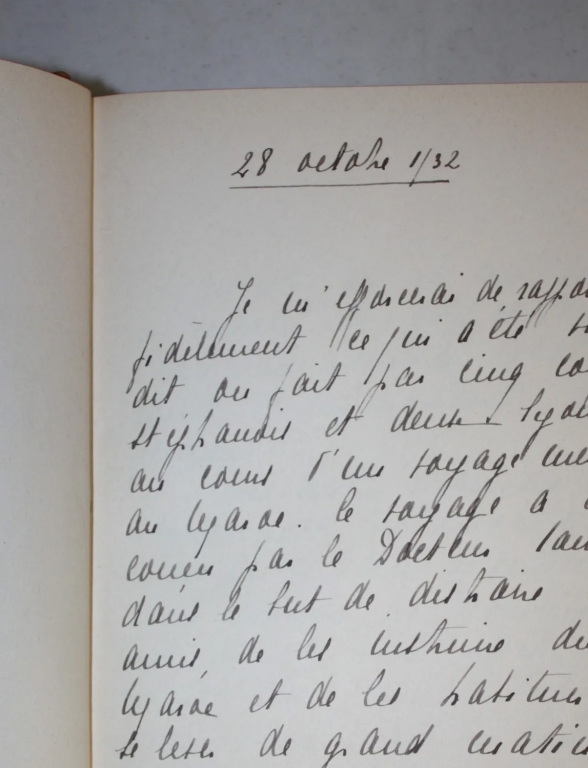 28 octobre 1932
Je m'efforcerai de
fidèlement ce qui a été
dit ou fait par cinq
stéphanois et deux
au cours d'un voyage
au Le voyage a
conçu par le Docteur
dans le but de distraire
amis, de les instruire
et de les habituer
se lever de grand matin